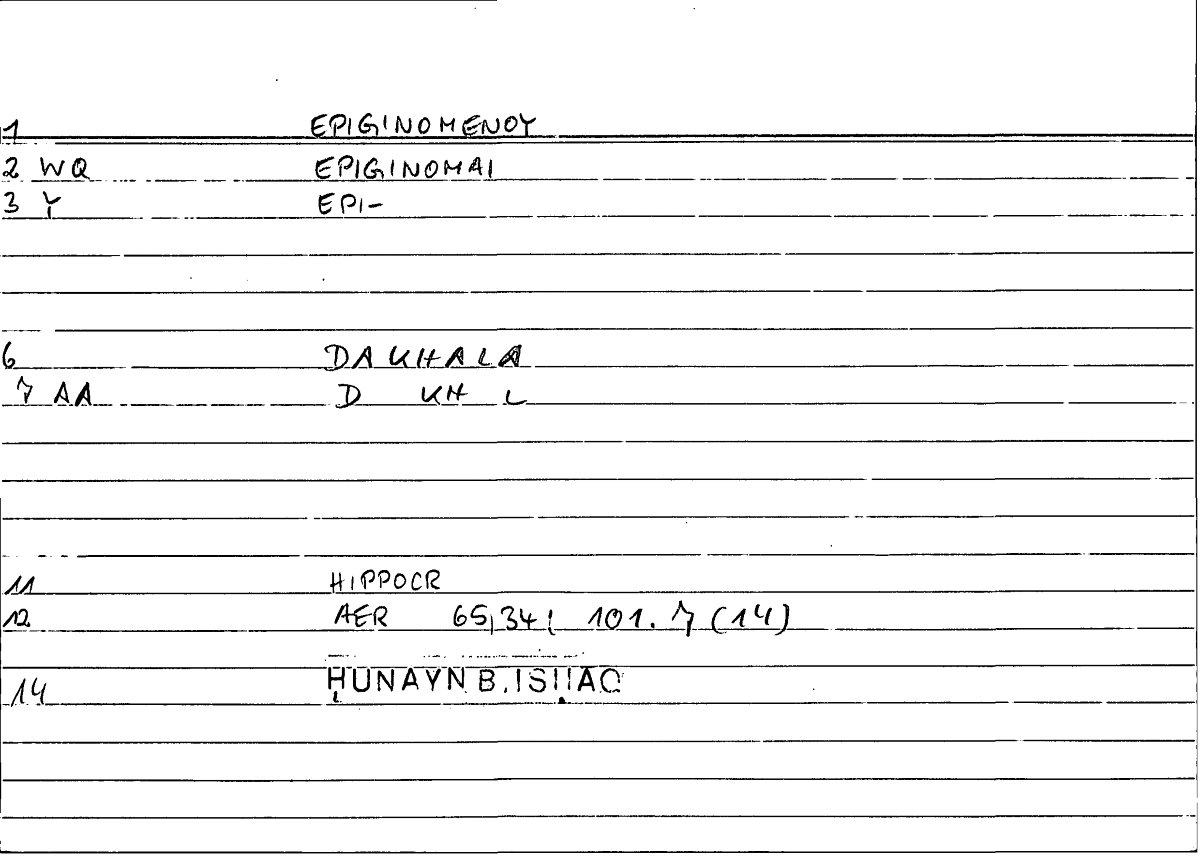 1 EPIGINOMENOY
2 WQ EPIGINOMAI
3 Y EPI-
6 DAKHALA
7 AA D KH L
11 HIPPOCR
12 AER 65,34; 101.7 (14)
14 ḤUNAYN B. ISḤAQ